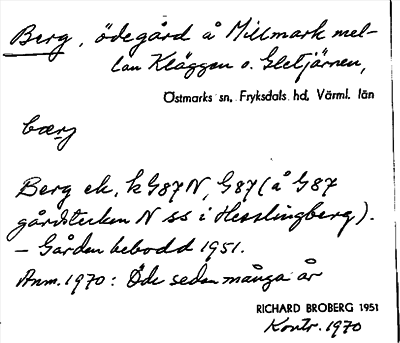 Berg, ödegård å Millmark mel-
lan Kläggen o. Gletjärnen,
Östmarks sn, Fryksdals hd, Värml. län
bærj
Berg ek, k G87N, G87 (å G87
gårdstecken N ss i Hesslingberg).
– Gården bebodd 1951.
Anm. 1970: Öde sedan många år
RICHARD BROBERG 1951
Kontr. 1970